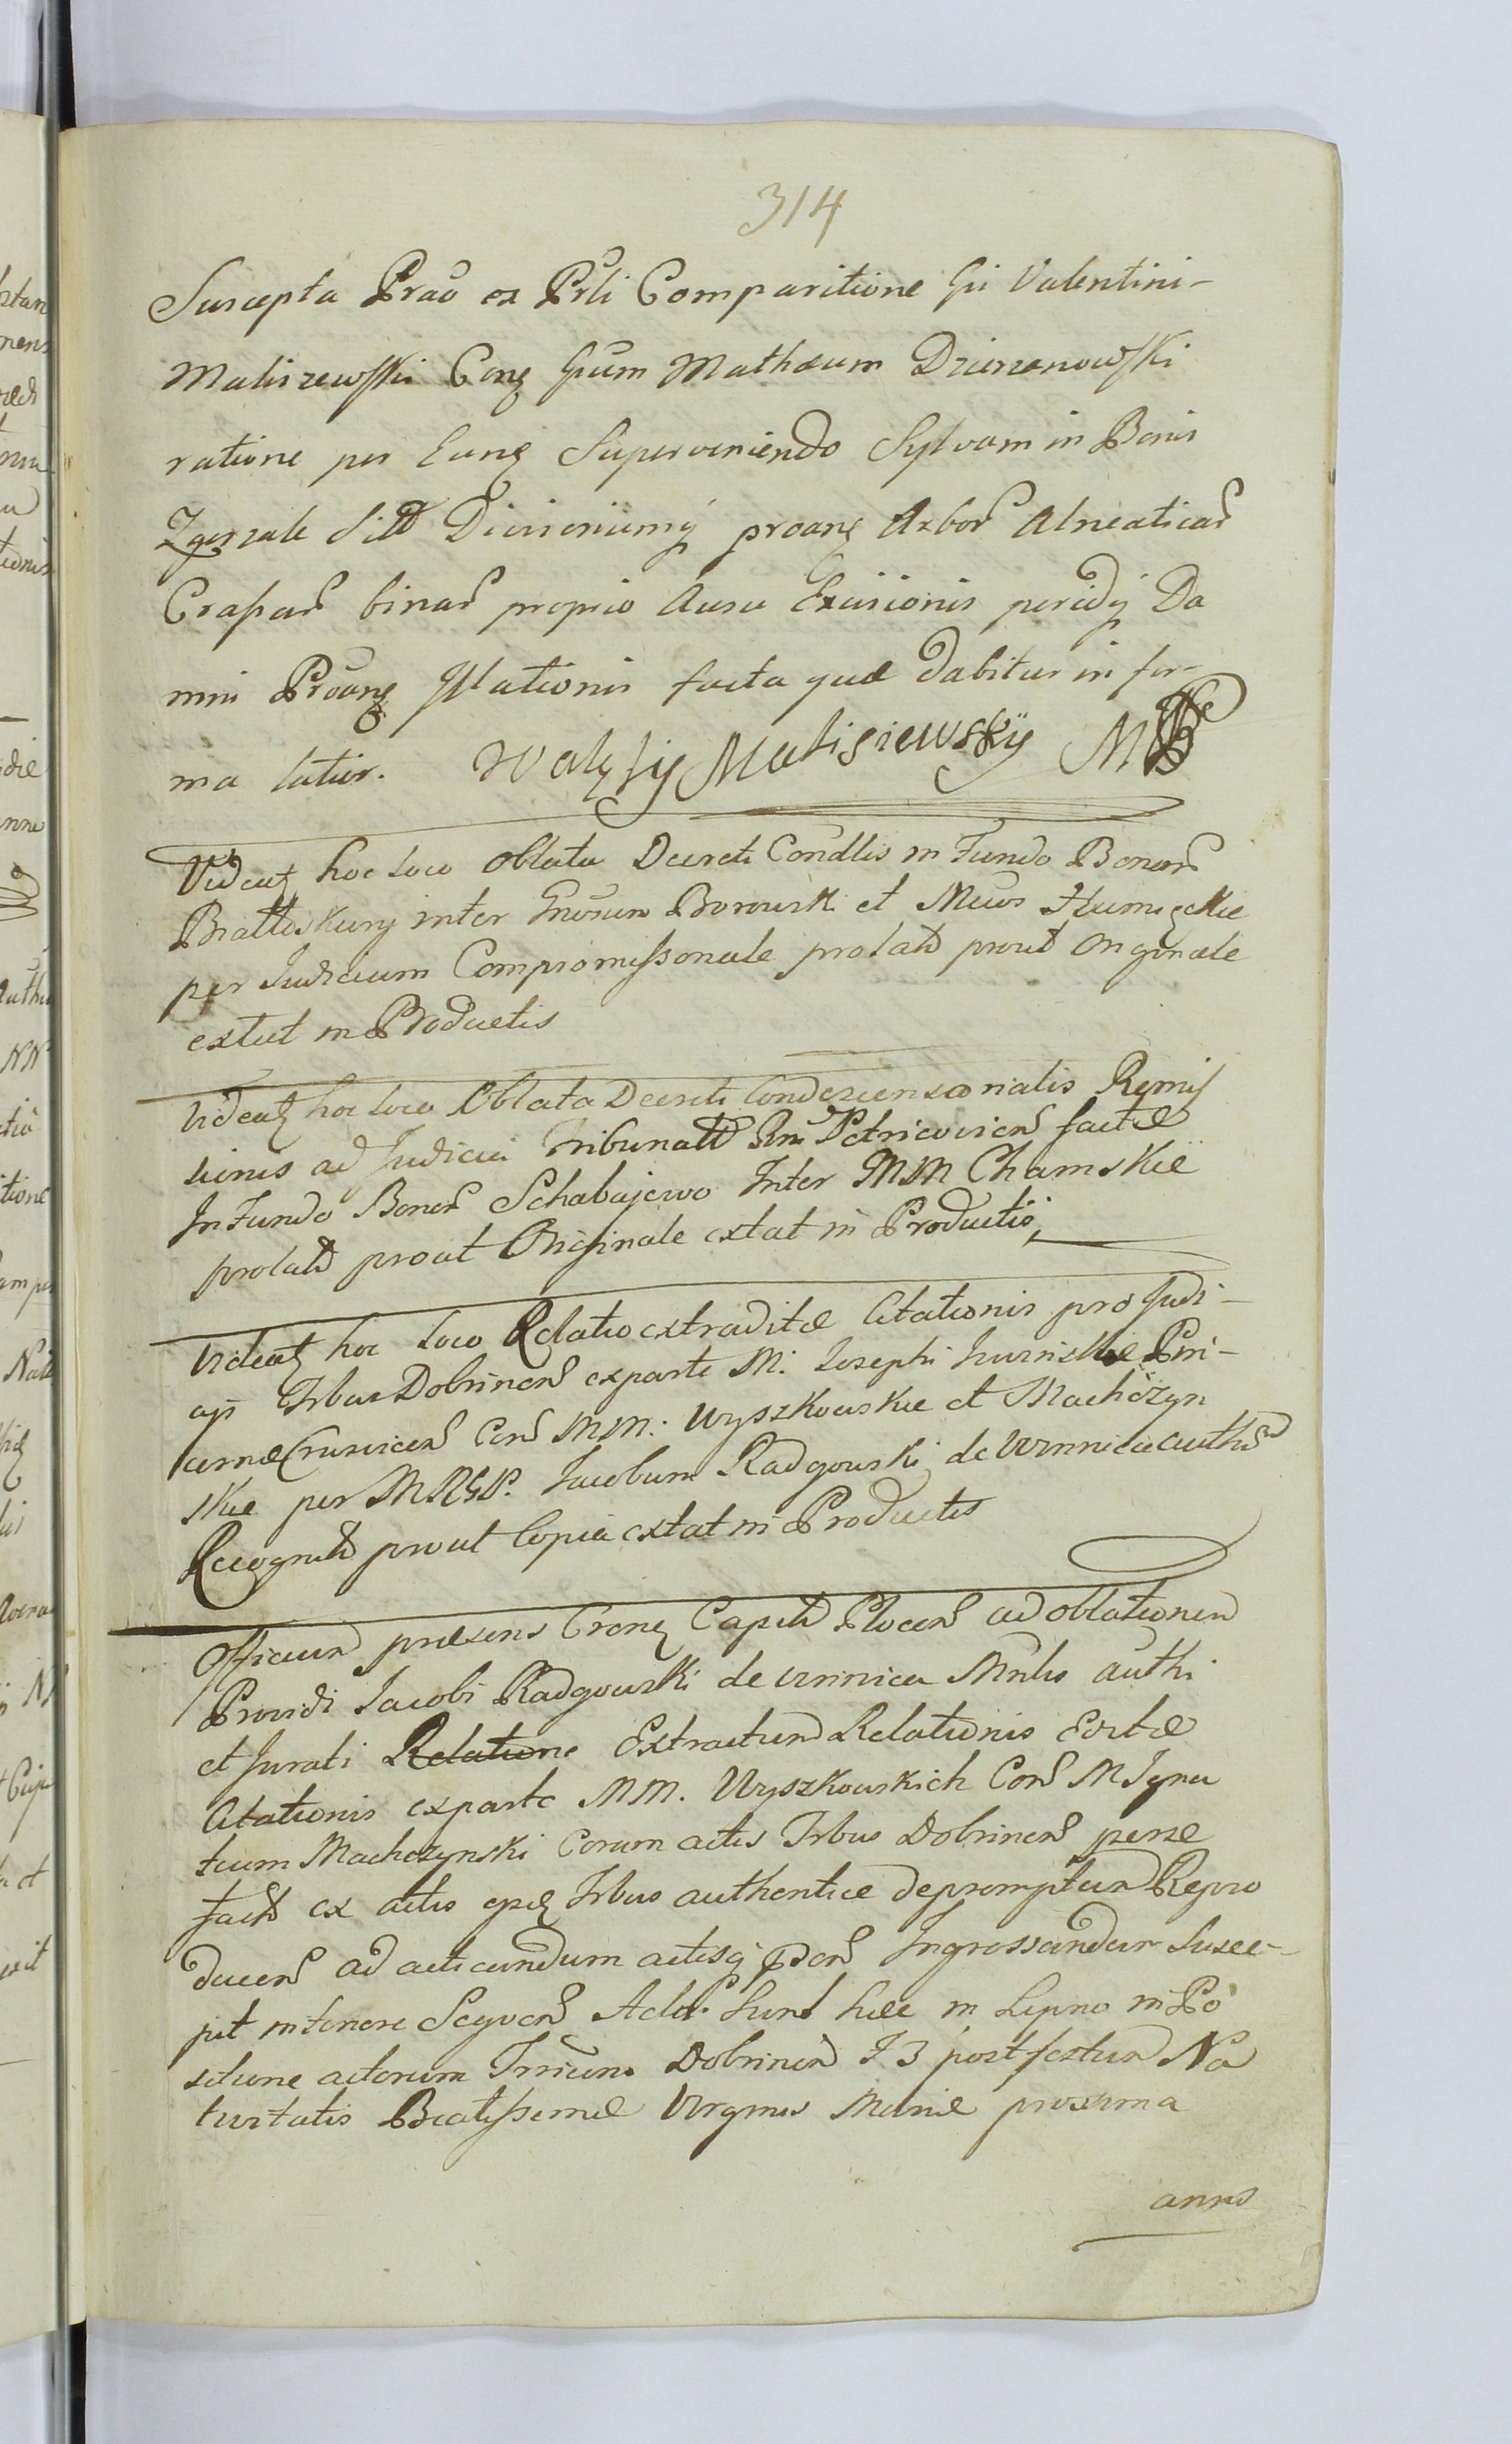 314
Suscepta Prao ex Prli Comparitione Gi Valentini-
Maliszewsski Conq Gum Mathæum Dzierzanowsski
ratione per Eunq Superveniendo Sylvam in Bonis
Zgorzale proanq Arbor Alneaticar
Crassar binar proprio Ausu Excisionis peridq Da
mni Proanq Illationis facta quæ dabitur in for-
ma latior. Walęty Malisiewsky
Videatq hoc loco Oblata Decreti Condllis in Fundo Bonor
inter Gnosum Borowski et
per Judicium Compromissoriale prolati prout Originale
extat in Productis
Videatq hoc loco Oblata Decreti Condescensorialis Remis
sionis ad Judicia Tribunalit Rni Petricovien factæ
In Fundo Bonor Schabajewo Inter MM Chamskie
prolati prout Originale extat in Productis,
Videatq hoc loco Relatio extraditæ Citationis pro Judi-
ciji Trbus Dobrinen exparte M: Josephi Pin-
cernæ Crusvicen Con MM: Wyszkowskie et Machczyn
skie per MRGP. Jacobum Radgowski de Winnica auth
Recognit prout Copia extat in Productis
Officium præsens Crenq Capit Plocen ad oblationem
Providi Jacobi Radgowski de Winnica Mnlis authi
et Jurati Relatione Extractum Relationis Eortæ
Citationis exparte MM. Wyszkowskich Con M Igna
tium Machczynski Coram actis Trbus Dobrinen pense
fact ex actis epdq Trbus authentice depromptum Repro
ducen ad acticandum actisq pden Ingrossandum Susce-
pit in tenore Seqven Act Sunt hæc in Lipno in Po
sitione actorum Terrium Dobrinen F 3 post festum Na
tivitatis Beatissimæ Virginis Mariæ proxima
anno